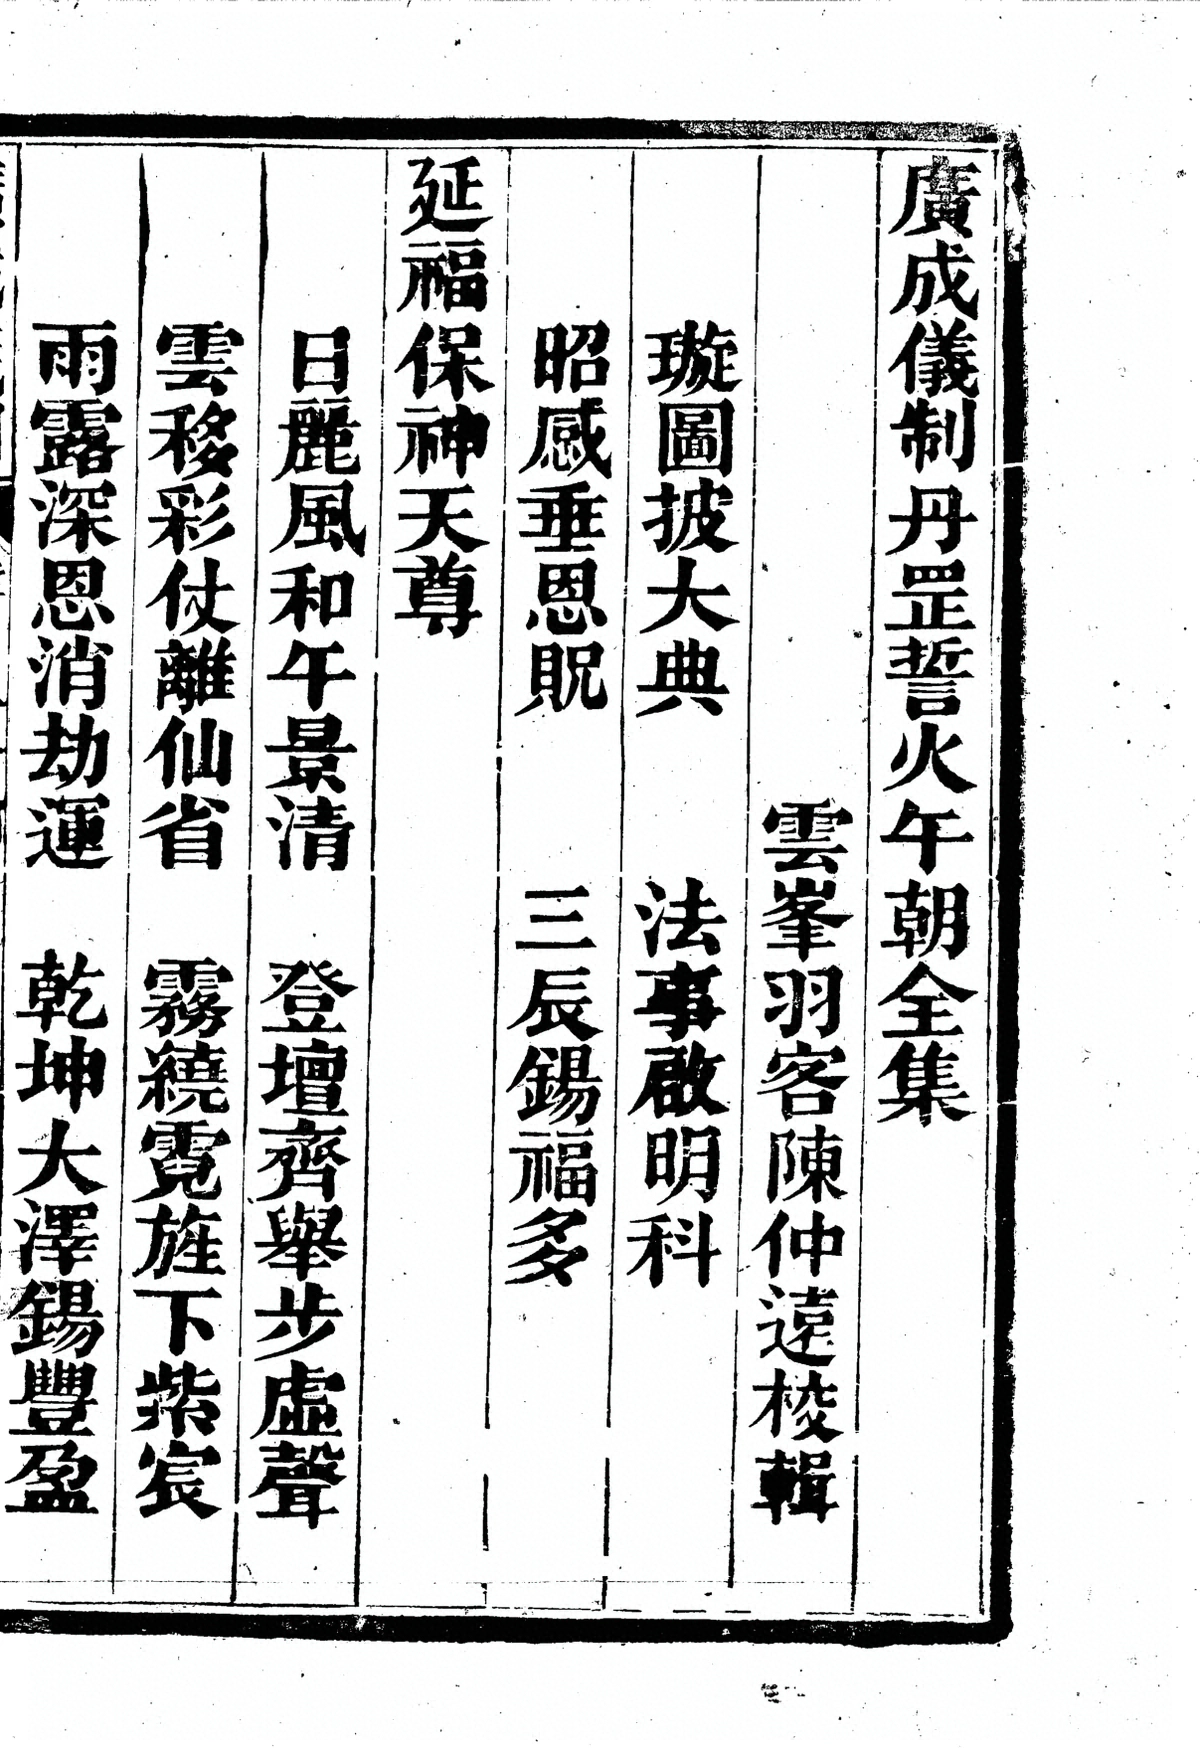 廣成儀制丹罡誓火午朝全集
雲峯羽客陳仲遠校輯
璇圖披大典　法事啟明科
昭感垂恩貺　三辰錫福多
延福保神天尊
日麗風和午景清　登壇齊舉步虛聲
雲移彩仗離仙省　霧繞霓旌下紫宸
雨露深恩消劫運　乾坤大澤錫豐盈